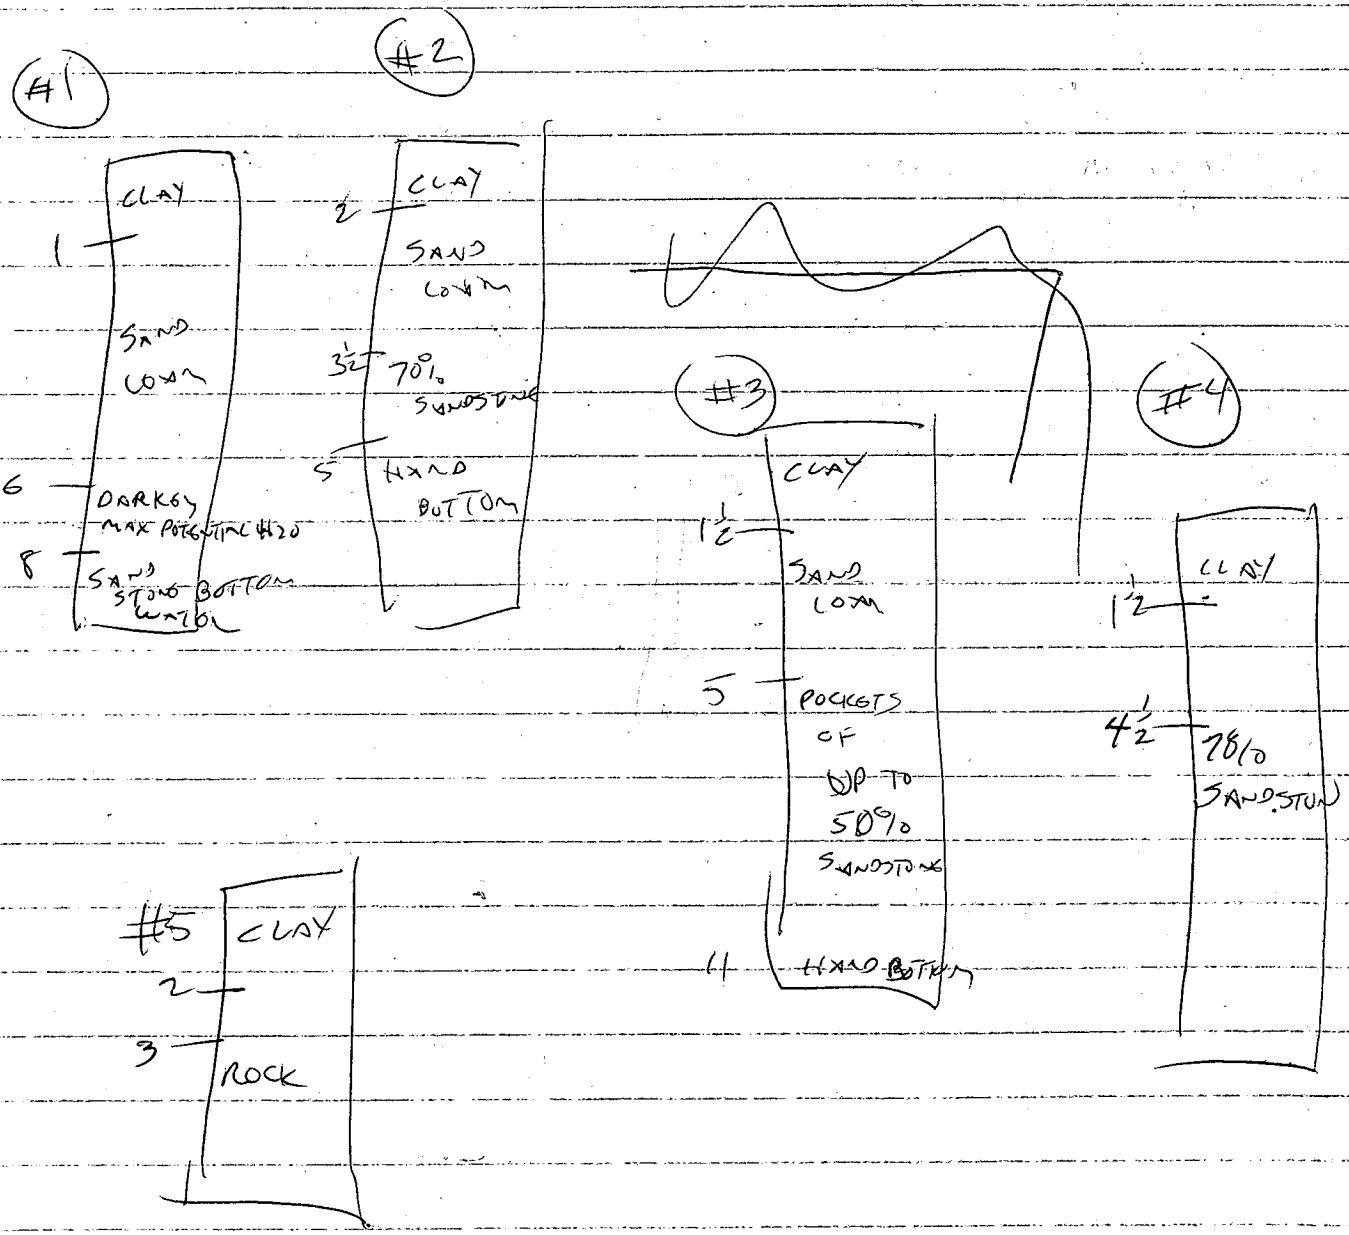 #1
CLAY
1
SAND
LOAM
6
DARKEY
MAX POTENTIAL H20
8
SAND
STONE BOTTOM
WATER
#2
CLAY
2
SAND
LOAM
3½
70%
SANDSTONE
5
HARD
BOTTOM
#3
CLAY
1½
SAND
LOAM
5
POCKETS
OF
UP TO
50%
SANDSTONE
11
HARD BOTTOM
#4
CLAY
1½
4½
70%
SANDSTON
#5
CLAY
2
3
ROCK